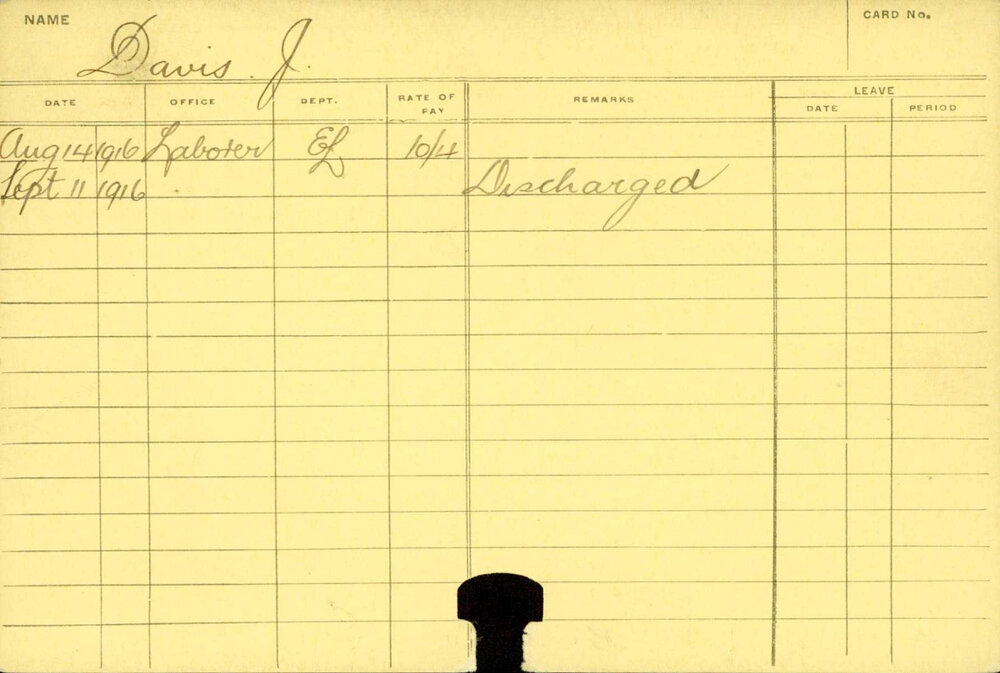 NAME Davis. J. CARD No.
DATE OFFICE DEPT. RATE OF PAY REMARKS LEAVE
DATE PERIOD
Aug 14 1916 Laborer EL 10/4
Sept 11 1916 Discharged